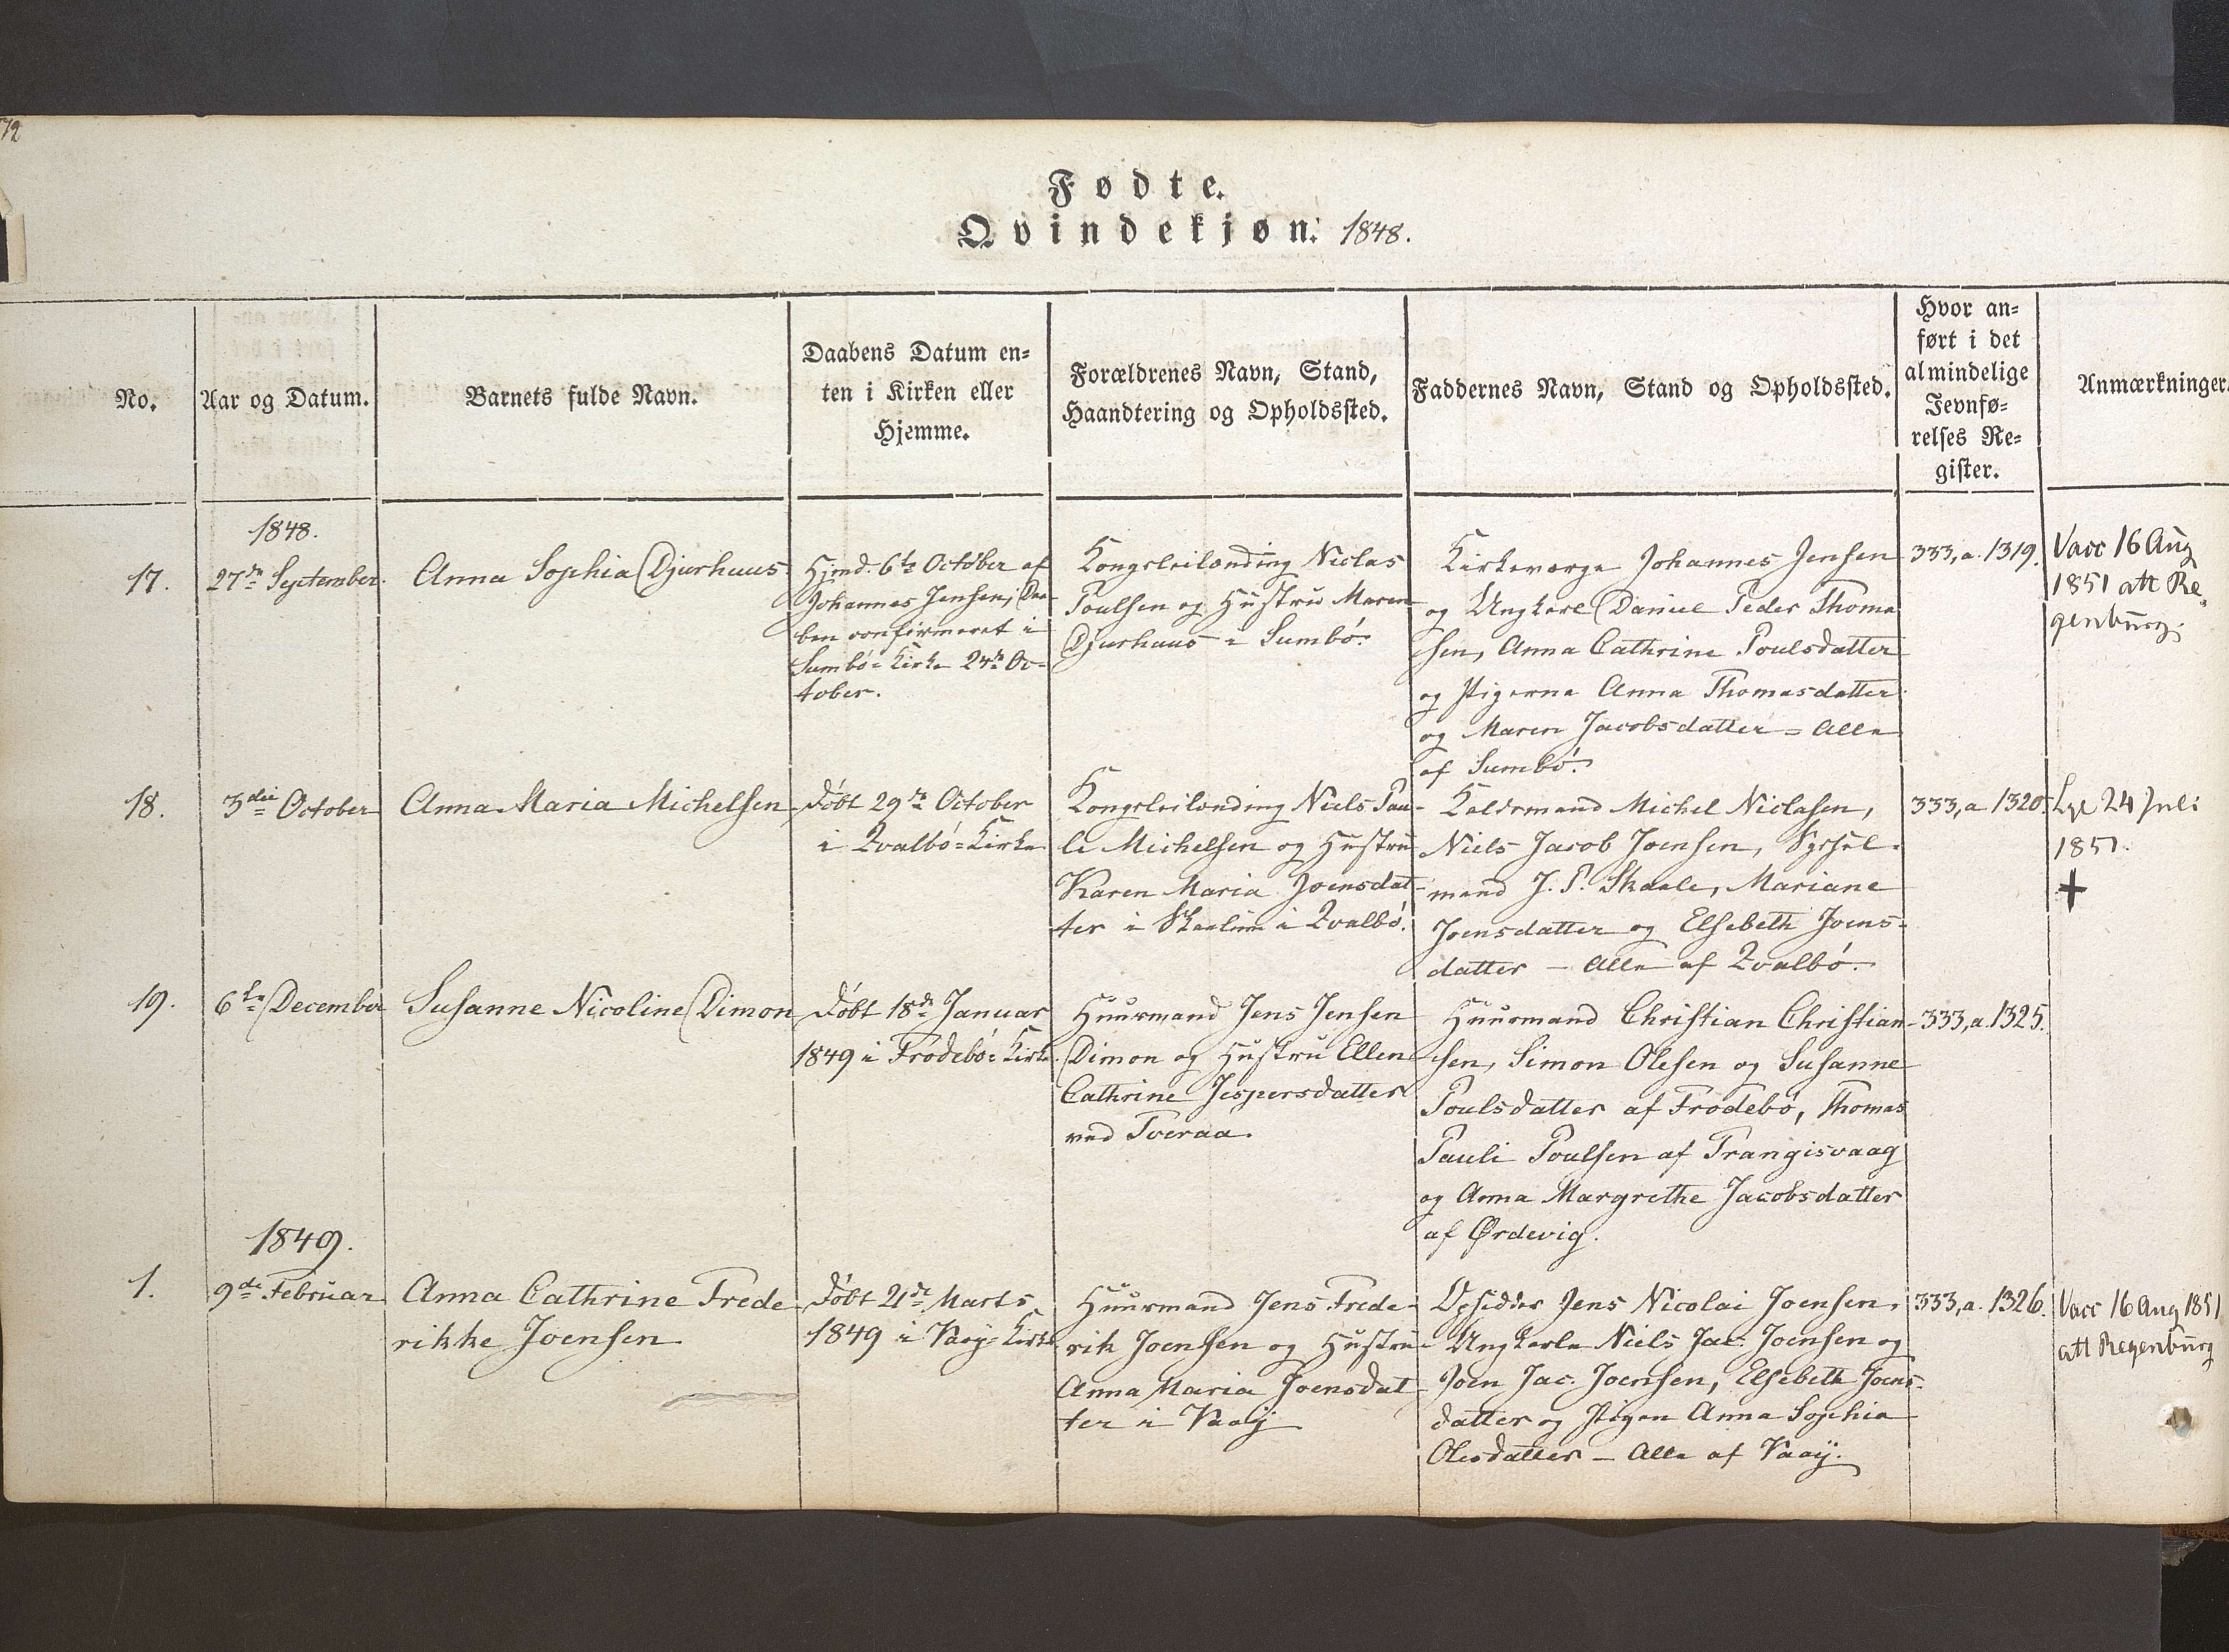 72
Fødte.
Qvindekjøn. 1848.
No.
Aar og Datum.
Barnets fulde Navn.
Daabens Datum en-
ten i Kirken eller
Hjemme.
Forældrenes Navn, Stand,
Haandtering og Opholdssted.
Faddernes Navn, Stand og Opholdssted.
Hvor an-
ført i det
almindelige
Jevnfø-
relses Re-
gister.
Anmærkninger.
1848.
17.
27de September.
Anna Sophia Djurhuus.
Hjmd. 6te October af
Johannes Jensen; Daa-
ben confirmeret i
Sumbö= Kirke 24de Oc-
tober.
Kongsleilænding Niclas
Poulsen og Hustru Maren
Djurhuus i Sumbö.
Kirkeværge Johannes Jensen
og Ungkarl Daniel Peder Thoma
sen, Anna Cathrine Poulsdatter
og Pigerne Anna Thomasdatter
og Maren Jacobsdatter = Alle
af Sumbö.
333, a. 1319.
Vacc 16 Aug
1851 att Re
genburg.
18.
3die October
Anna Maria Michelsen
Döbt 29de October
i Qvalbö=Kirke
Kongsleilænding Niels Pau-
li Michelsen og Hustru
Karen Maria Joensdat-
ter i Skaalum i Qvalbö.
Michel Niclasen,
Niels Jacob Joensen, Syssel-
mand J. P. Skaale, Mariane
Joensdatter og Elsebeth Joens-
datter — Alle af Qvalbö.
333, a 1320.
24 Juli
1851.
+
19.
6te December
Susanne Nicoline Dimon
Döbt 18de Januar
1849 i Frodebö= Kirke.
Huusmand Jens Jensen
Dimon og Hustru Ellen
Cathrine Jespersdatter
ved Tveraa.
Huusmand Christian Christian-
sen, Simon Olesen og Susanne
Poulsdatter af Frodebö, Thomas
Pauli Poulsen af Trangisvaag
og Anna Margrethe Jacobsdatter
af Ørdevig.
333, a. 1325.
1849.
1.
9de Februar
Anna Cathrine Frede
rikke Joensen
Döbt 21de Marts
1849 i Vaag= Kirke
Huusmand Jens Frede-
rik Joensen og Hustru
Anna Maria Joensdat
ter i Vaag
Opsidder Jens Nicolai Joensen,
Ungkarle Niels Jac: Joensen og
Joen Jac. Joensen, Elsebeth Joens-
datter og Pigen Anna Sophia
Olesdatter — Alle af Vaag.
333, a. 1326.
Vacc 16 Aug 1851
att Regenburg